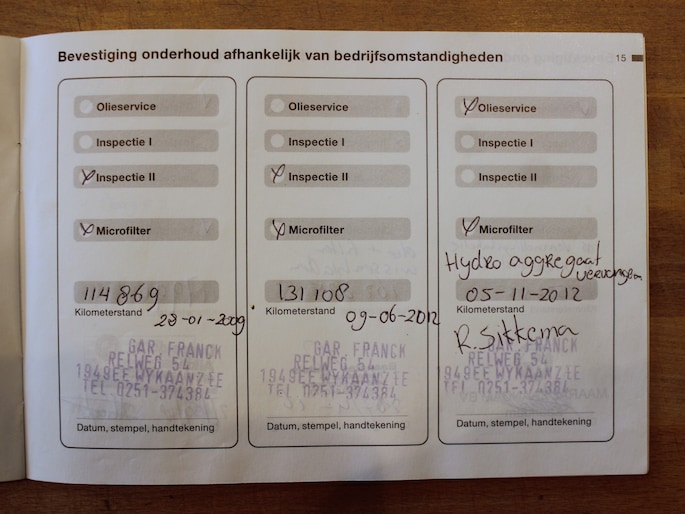 Bevestiging onderhoud afhankelijk van bedrijfsomstandigheden
15
Olieservice
Inspectie I
Inspectie II
Microfilter
114869
Kilometerstand
28-01-2009
GAR. FRANCK
RELWEG 54
1949EE WYKAANZEE
TEL.0251-374384
Datum, stempel, handtekening
Olieservice
Inspectie I
Inspectie II
Microfilter
131108
Kilometerstand
09-06-2012
GAR. FRANCK
RELWEG 54
1949EE WYKAANZEE
TEL.0251-374384
Datum, stempel, handtekening
Olieservice
Inspectie I
Inspectie II
Microfilter
Hydro aggregaat
vervangen
05-11-2012
Kilometerstand
R.Sikkema
GAR. FRANCK
RELWEG 54
1949EE WYKAANZEE
TEL.0251-374384
Datum, stempel, handtekening